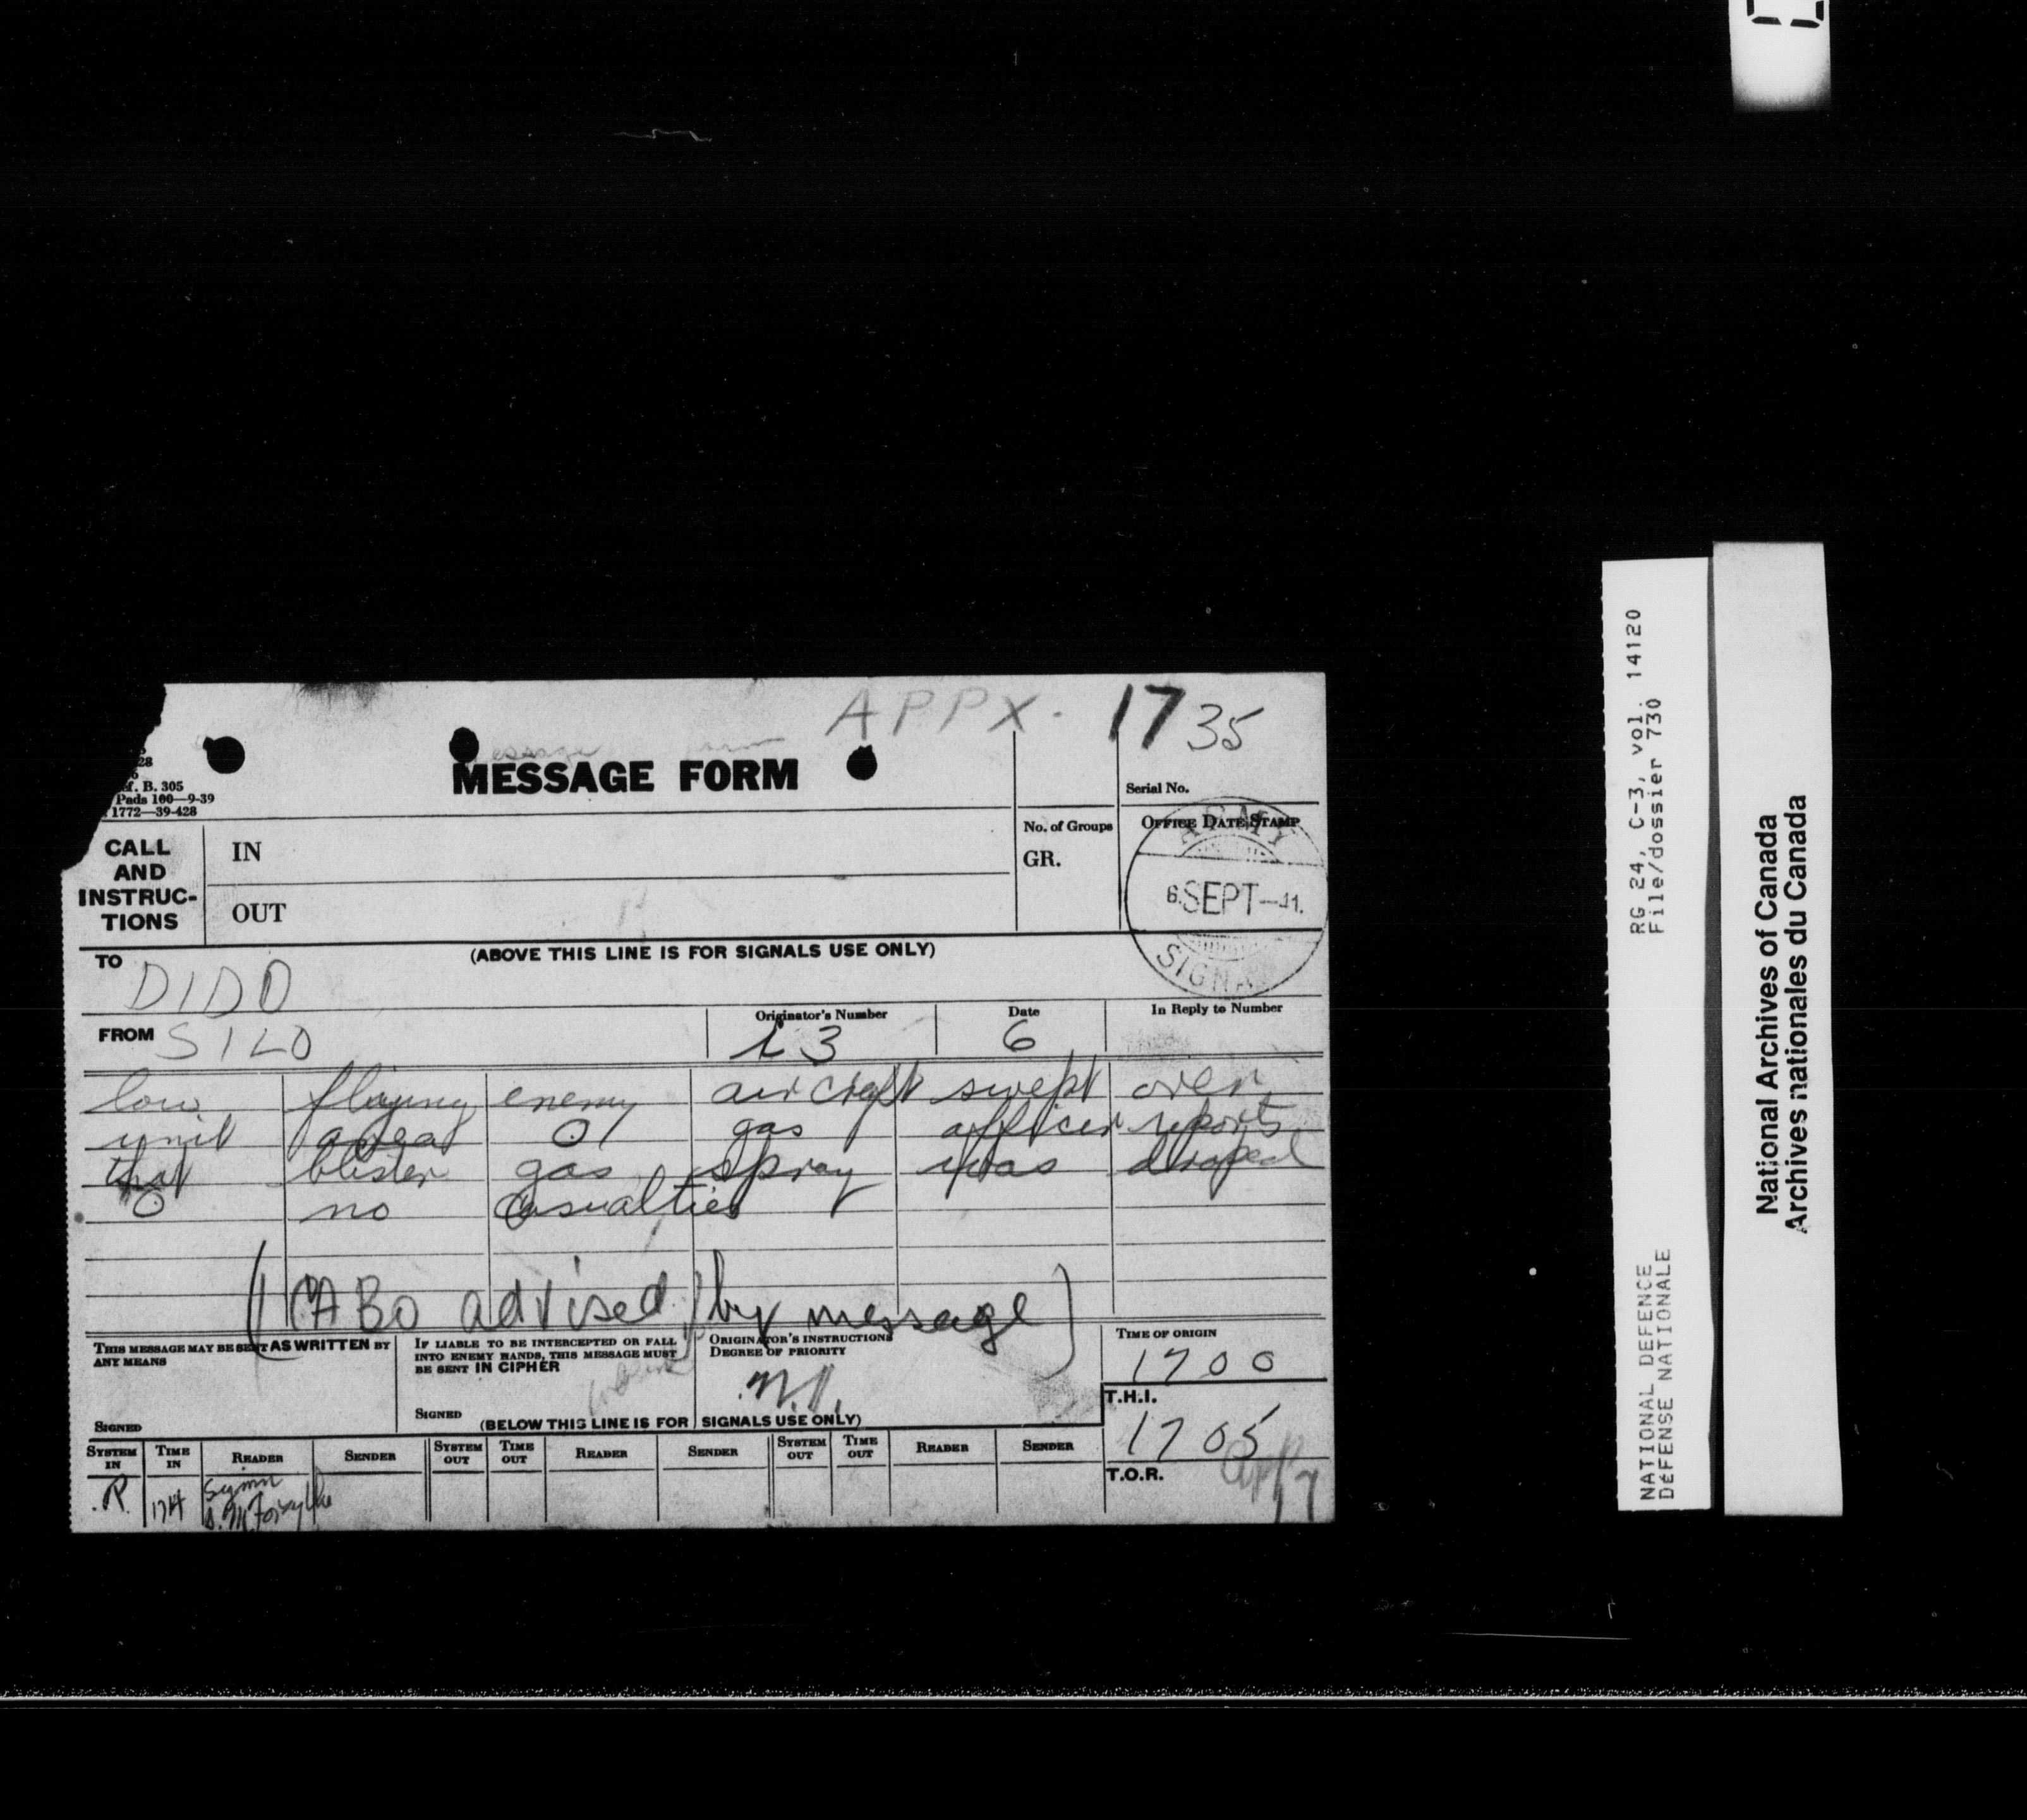 APPX. 17 35
28
f. B. 305
Pads 100—9-39
1772—39-428
MESSAGE FORM
Serial No.
CALL AND INSTRUC-TIONS
IN
OUT
No. of Groups
GR.
OFFICE DATE STAMP
ARMY
6 SEPT—41.
SIGNA
(ABOVE THIS LINE IS FOR SIGNALS USE ONLY)
TO DIDO
FROM SILO
Originator's Number
i 3
Date
6
In Reply to Number
low flying enemy aircraft swept over
unit area O gas officer reports
that blister gas spray was droped
O no casualties
(CABO advised by message)
THIS MESSAGE MAY BE SENT AS WRITTEN BY ANY MEANS
SIGNED
IF LIABLE TO BE INTERCEPTED OR FALL INTO ENEMY HANDS, THIS MESSAGE MUST BE SENT IN CIPHER
SIGNED
ORIGINATOR'S INSTRUCTIONS
DEGREE OF PRIORITY
TIME OF ORIGIN
1700
T.H.I.
1705
T.O.R.
(BELOW THIS LINE IS FOR SIGNALS USE ONLY)
SYSTEM IN TIME IN READER SENDER SYSTEM OUT TIME OUT READER SENDER SYSTEM OUT TIME OUT READER SENDER
R. 1714 Sigmn
RG 24, C-3, vol. 14120
File/dossier 730
NATIONAL DEFENCE
DéFENSE NATIONALE
National Archives of Canada
Archives nationales du Canada